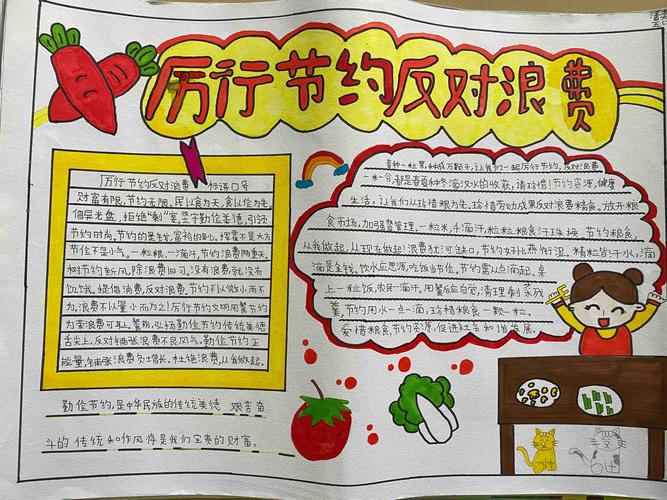 厉行节约反对浪费
厉行节约反对浪费 标语口号
财富有限,节约无限,民以食为天,食以俭为先。
倡导光盘,拒绝"剩"宴,坚守勤俭美德,引领
节约时尚,节约的是钱,富裕的是心,挥霍不是大方
节俭不是小气。一粒粮、一滴汗,节约浪费两重天。
树节约新风,除浪费旧习,没有浪费就没有
饥饿。提倡消费,反对浪费,节约不以微小而不
为,浪费不以量小而为之!厉行节约文明用餐节约
为荣浪费可耻。餐桌,弘扬勤俭节约传统美德
舌尖上,反对铺张浪费不良风气。勤俭节约正
能量,铺张浪费负增长。杜绝浪费,从我做起。
勤俭节约,是中华民族的传统美德 艰苦奋
斗的 传统和作风将是我们宝贵的财富。
春种一粒粟,秋成万颗子,让我们一起厉行节约,反对浪费
一米一谷都是春夏秋冬滴汉水的收获,请珍惜!节约资源,健康
生活,让我们从珍惜粮食先,珍惜劳动成果反对浪费精食。放开粮
食市场,加强督管理。一粒米,千滴汗,粒粒粮食汗珠换 节约粮食,
从我做起,从现在做起!浪费犹河缺口,节约好比燕衔泥。精粒皆汗水,滴
滴是金钱。饮水应思源,吃饭当节俭。节约需从点滴起。桌
上一粒饭,农民一滴汗,用餐后应自觉,清理剩菜残
羹,节约用水一点一滴,珍惜粮食一颗一粒。
爱惜粮食,节约资源,促进社会和谐发展。